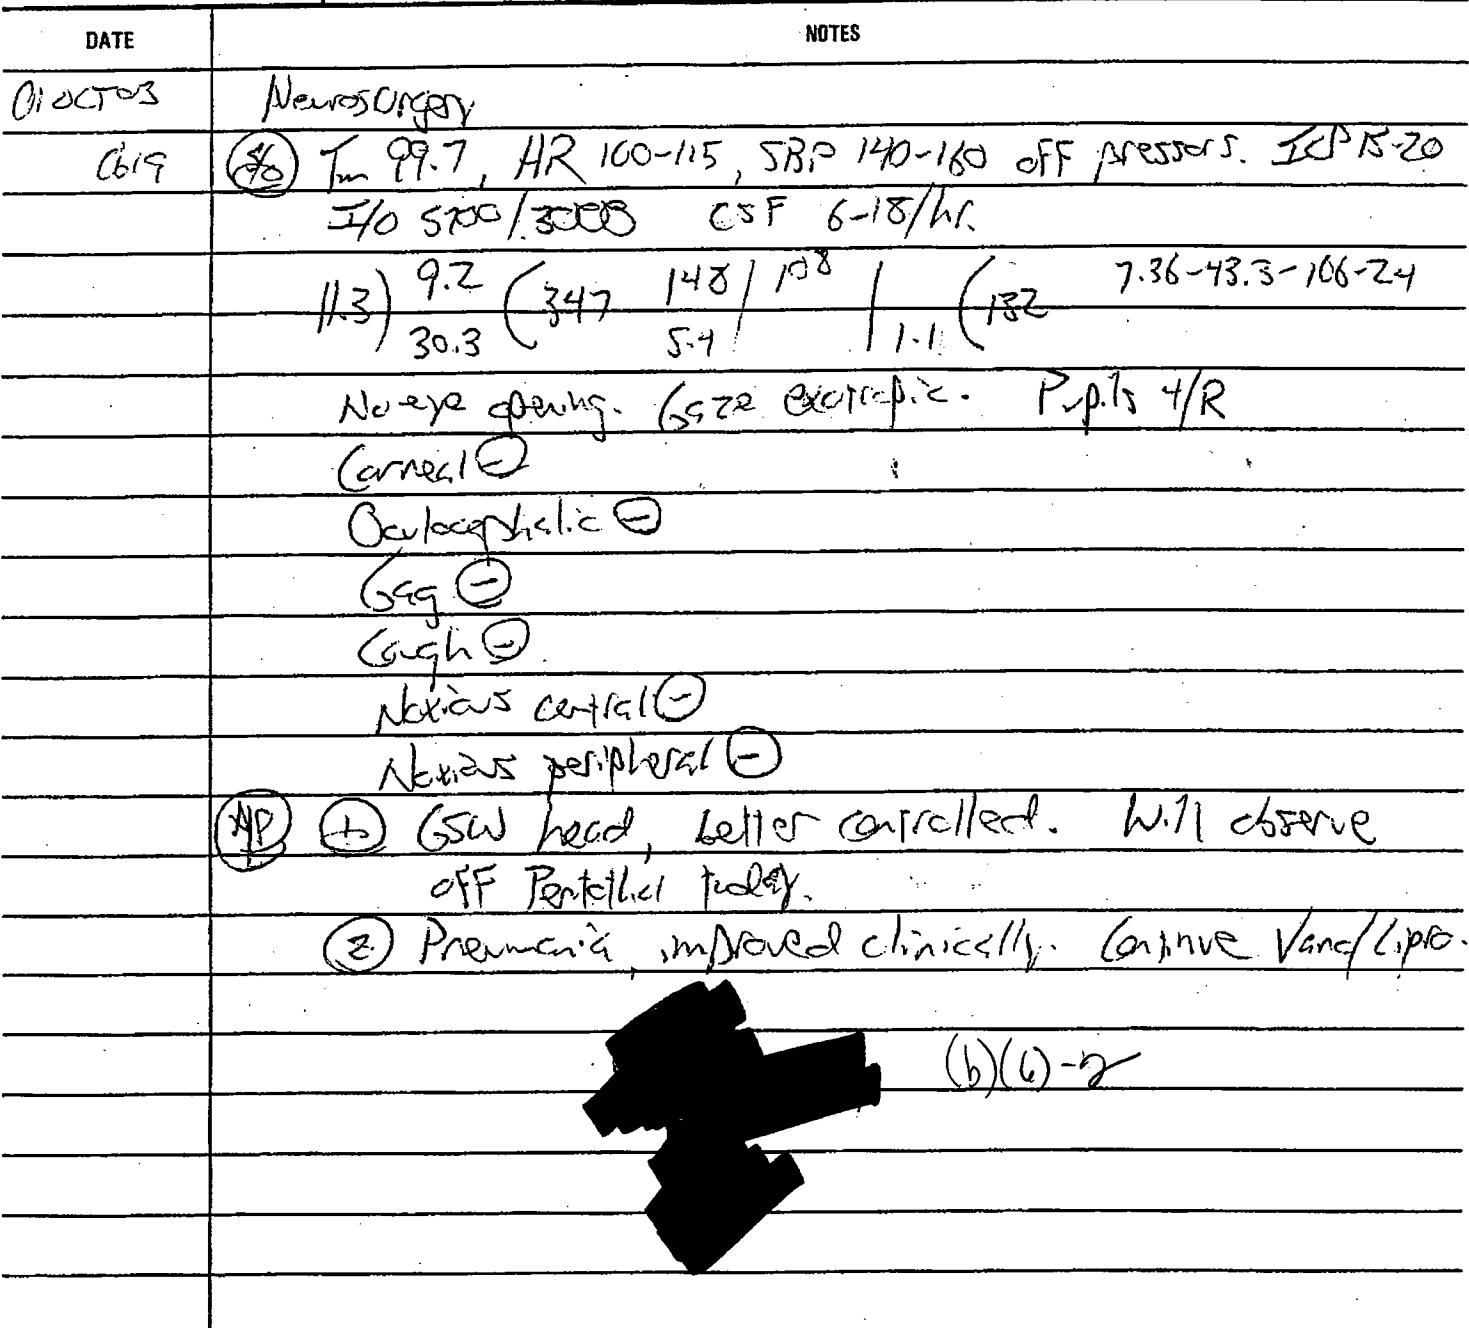 DATE NOTES
01OCT03 Neurosurgery
0619 S/O Tm 99.7, HR 100-115, SBP 140-160 off pressors. ICP 15-20
I/O 5700/3000 CSF 6-18/hr.
11.3) 9.2 (347 148 / 108 | (132 7.36-43.3-106-24
30.3 5.4 / | 1.1
No eye opening. Gaze exotropic. Pupils 4/R
Corneal ⊖
Oculocephalic ⊖
Gag ⊖
Cough ⊖
Noxious central ⊖
Noxious peripheral ⊖
A/P 1 GSW head, better controlled. Will observe
off Pentothal today.
2 Pneumonia, improved clinically. Continue Vanc/Cipro.
(b)(6)-2